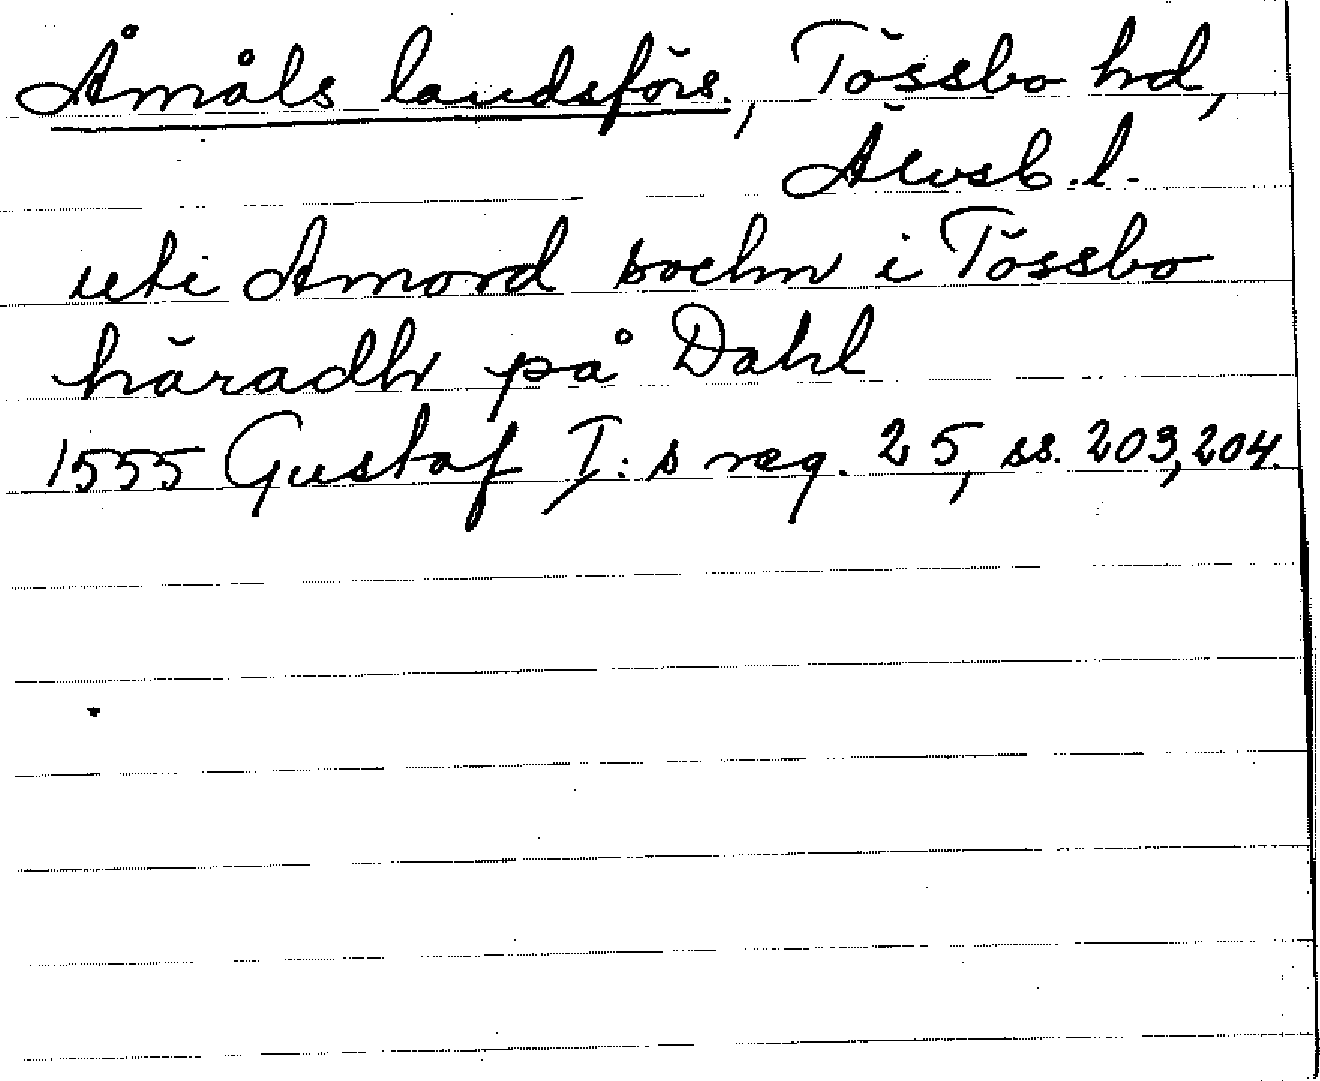 Åmåls landsförs., Tössbo hd,
Älvsb. l.
uti Amord sochn i Tössbo
häradh på Dahl
1555 Gustaf I:s reg. 25, ss. 203, 204.